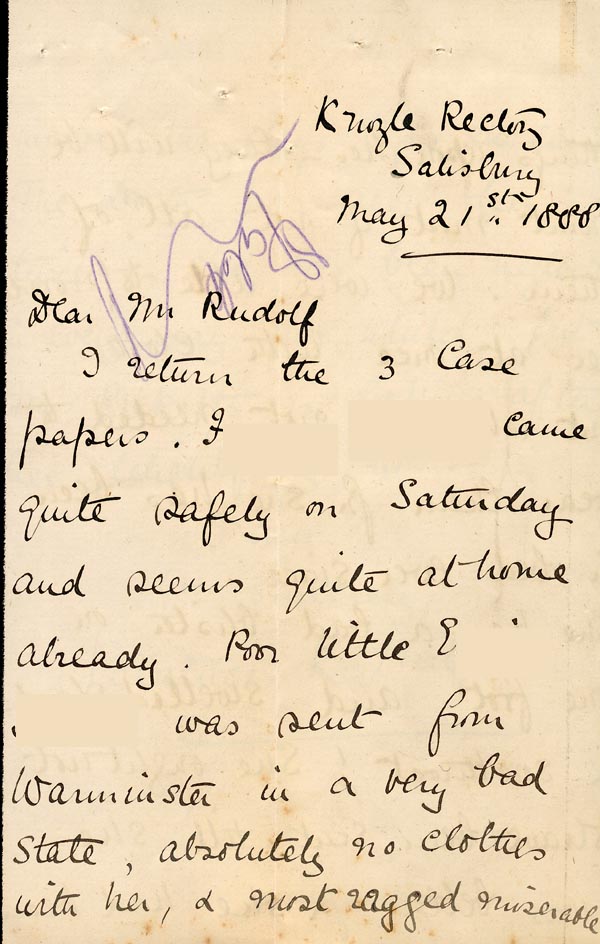 Knoyle Rectory
Salisbury
May 21st. 1888
Dear Mr Rudolf
I return the 3 Case
papers. F came
quite safely on Saturday
and seems quite at home
already. Poor little E
was sent from
Warminster in a very bad
State, absolutely no clothes
with her, & most ragged miserable